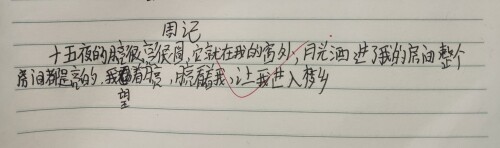 周记
十五夜的月亮很亮很圆,它就在我的窗外,月光洒进了我的房间整个
房间都是亮的,我看着月亮,月亮看着我,让我进入梦乡
望